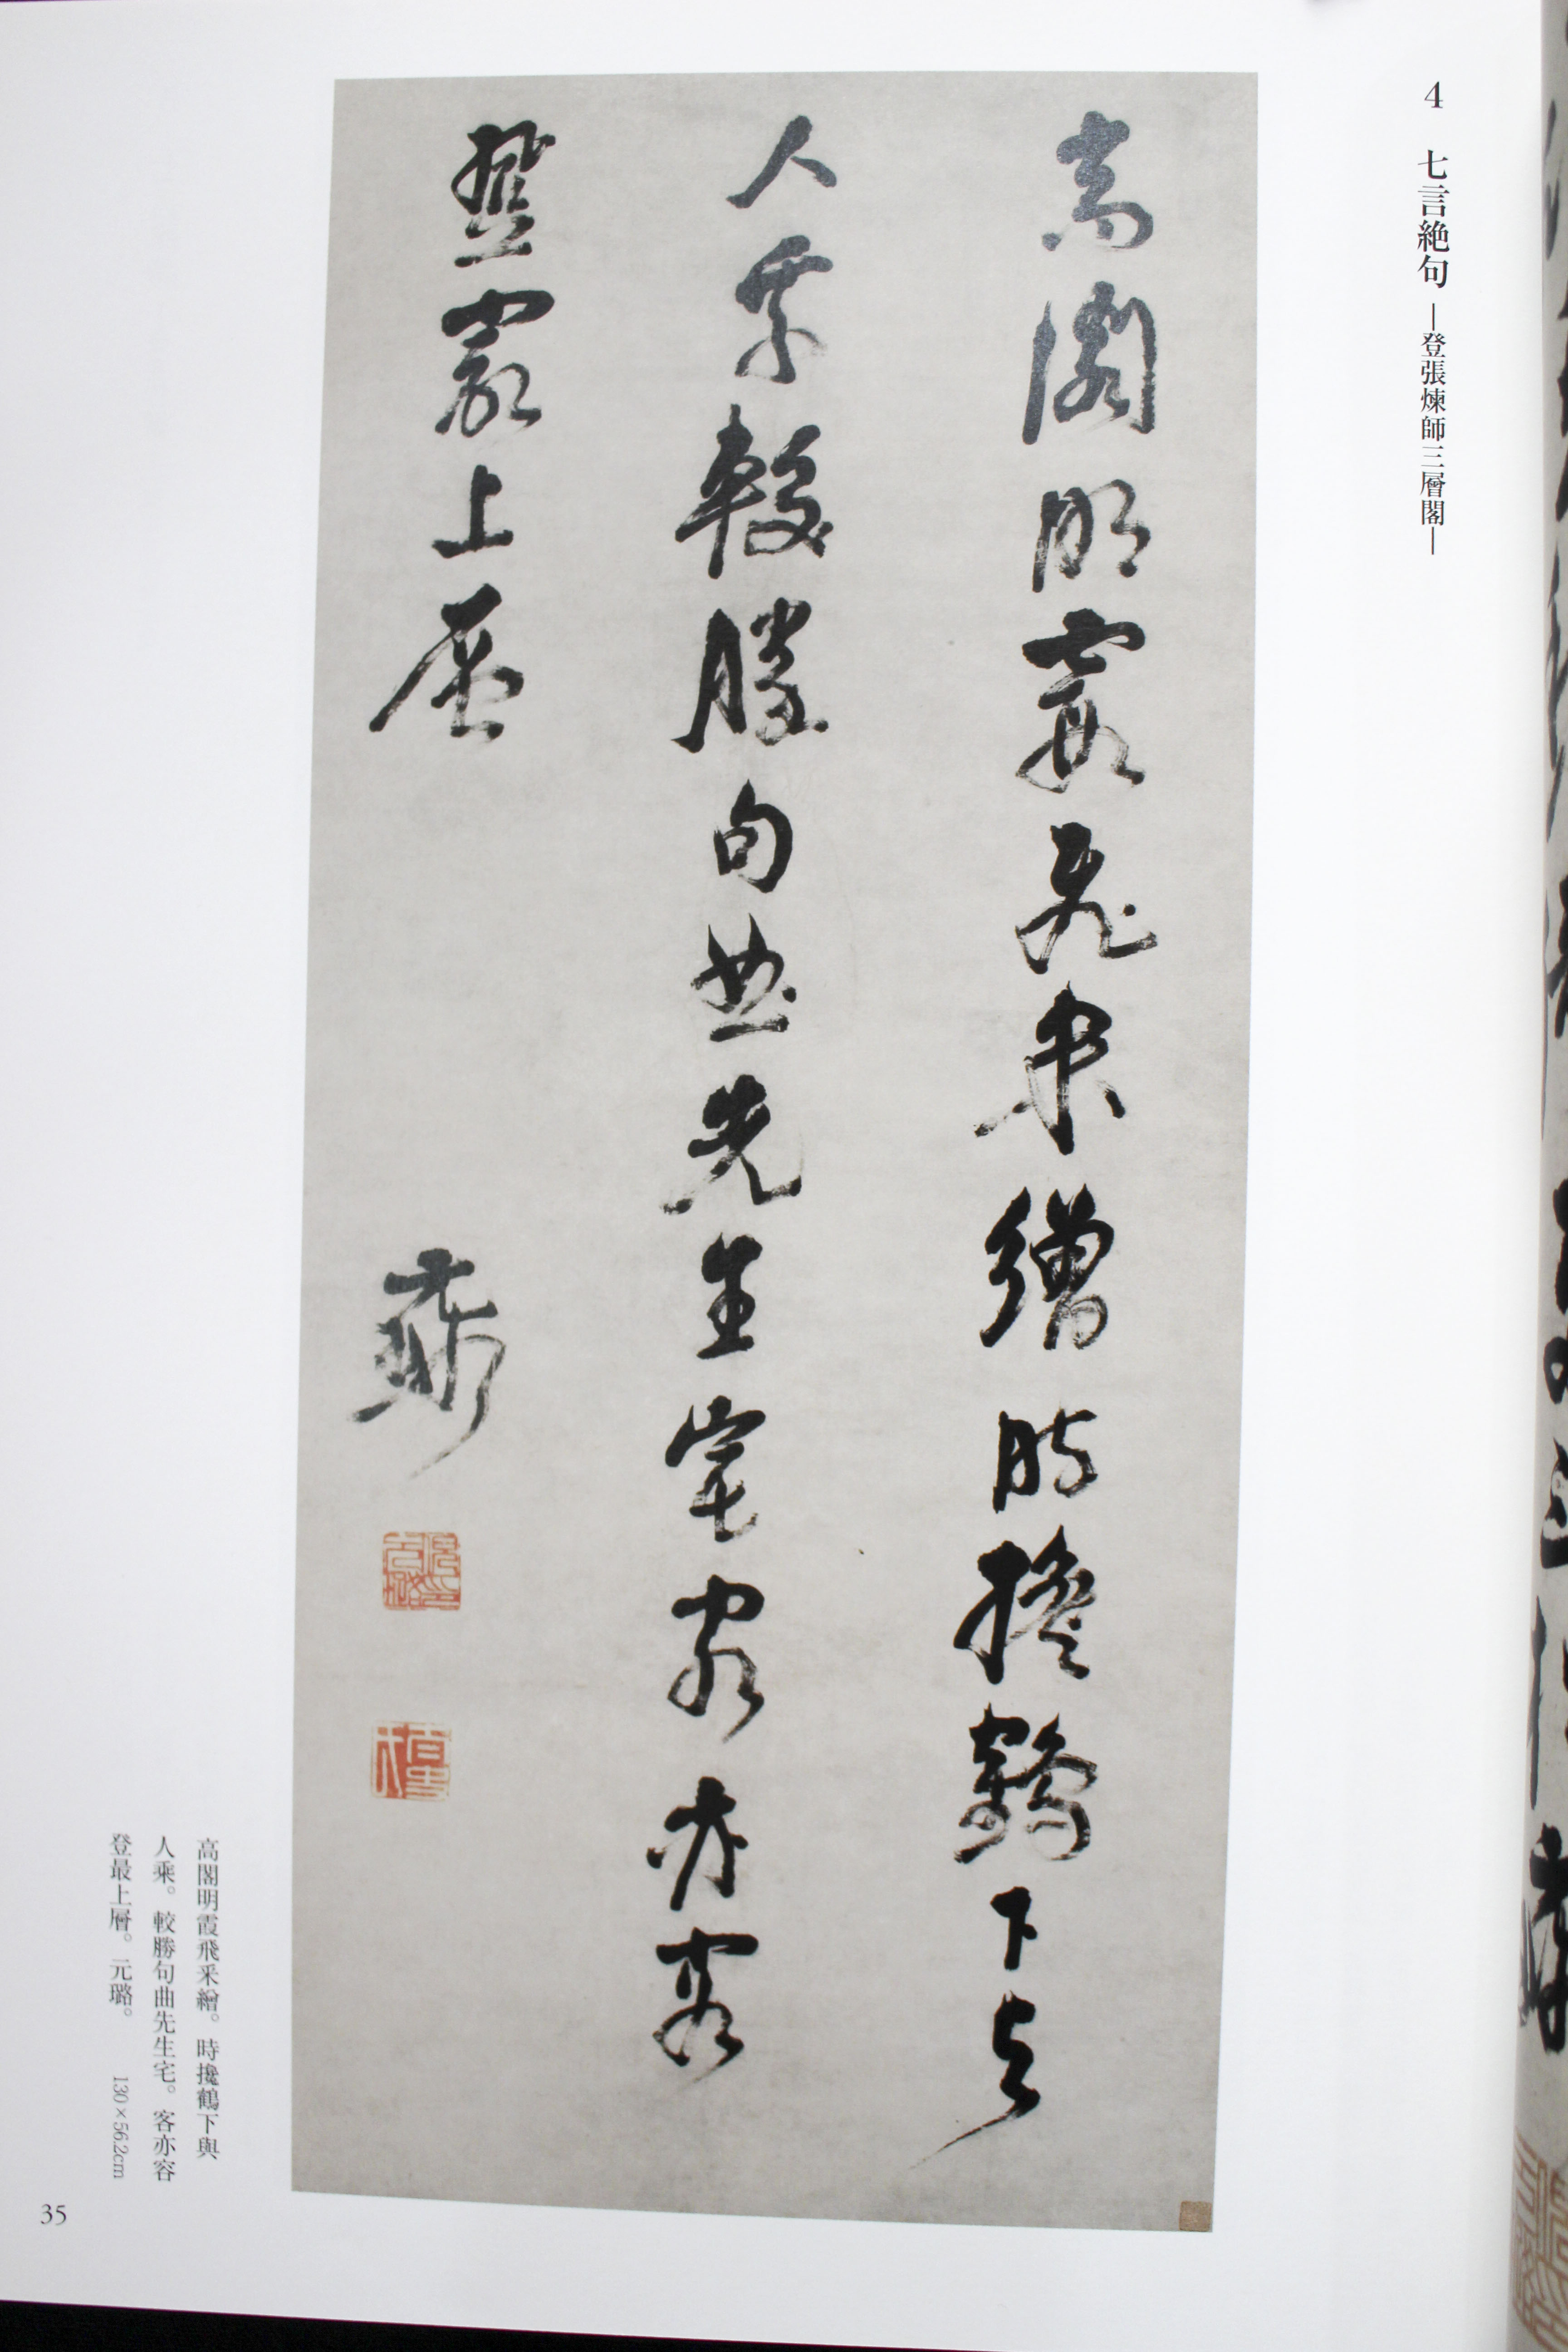 4 七言絶句 —登張煉師三層閣—
高閣明霞飛釆繒時攙鶴下与
人乗較勝句曲先生宅客亦容
登最上層
元璐
高閣明霞飛釆繒。時攙鶴下與
人乘。較勝句曲先生宅。客亦容
登最上層。元璐。 130×56.2cm
35